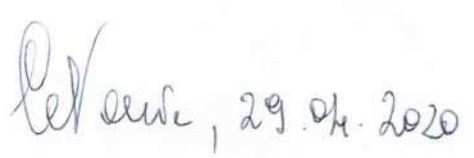 Cetona, 29.04.2020